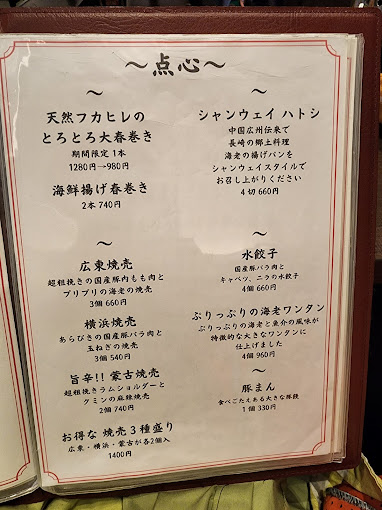 ～点心～
～
天然フカヒレの
とろとろ大春巻き
期間限定 1本
1280円→980円
海鮮揚げ春巻き
2本 740円
～
広東焼売
超粗挽きの国産豚内もも肉と
プリプリの海老の焼売
3個 660円
横浜焼売
あらびきの国産豚バラ肉と
玉ねぎの焼売
3個 540円
旨辛!! 蒙古焼売
超粗挽きラムショルダーと
クミンの麻辣焼売
2個 740円
お得な 焼売 3 種盛り
広東・横浜・蒙古が各2個入
1400円
～
シャンウェイ ハトシ
中国広州伝来で
長崎の郷土料理
海老の揚げパンを
シャンウェイスタイルで
お召し上がりください
4切 660円
～
水餃子
国産豚バラ肉と
キャベツ、ニラの水餃子
4個 660円
ぷりっぷりの海老ワンタン
ぷりっぷりの海老と魚介の風味が
特徴的な大きなワンタンに
仕上げました
4個 960円
～
豚まん
食べごたえある大きな豚饅
1個 330円